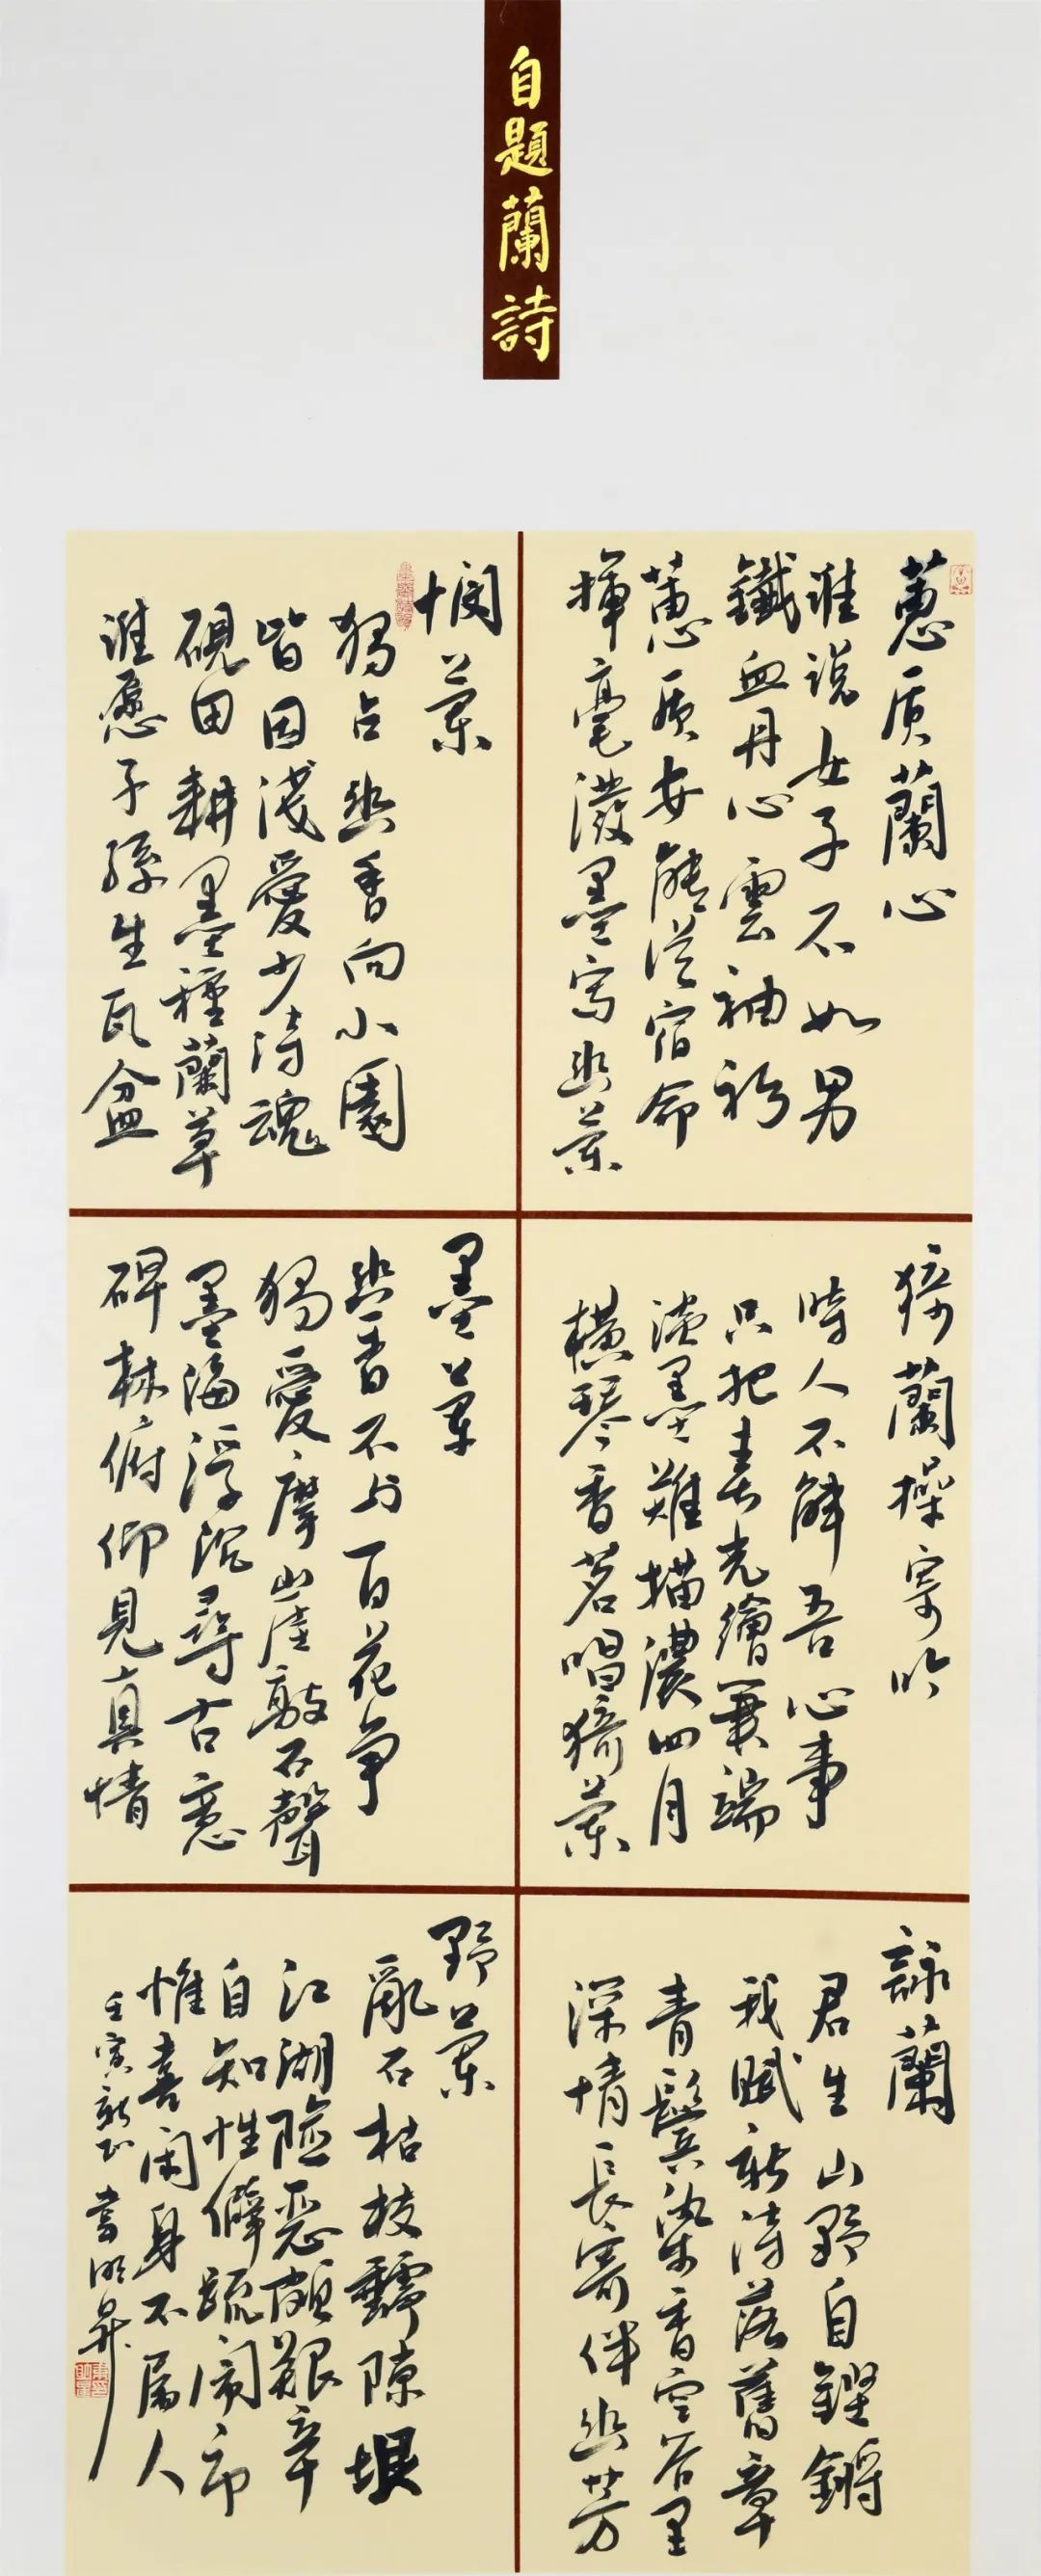 自題蘭詩
蕙质蘭心
谁说女子不如男
鐵血丹心雲袖衫
蕙质安能從宿命
揮毫潑墨寫幽兰
猗蘭操寄吟
時人不解吾心事
只把春光繪画端
淡墨難描濃四月
橫琴香茗唱猗兰
詠蘭
君生山野自鏗鏘
我賦新诗落舊章
青鬢染香空谷里
深情長寄伴幽芳
悯兰
独占幽香向小園
皆因淺愛少诗魂
硯田耕墨種蘭草
谁愿子孫生瓦盆
墨兰
幽香不与百花争
独愛摩山崖敲石聲
墨海浮沉尋古意
碑林俯仰見真情
野兰
亂石枯枝霸隙垠
江湖险恶頗艱辛
自知性僻疏闹市
惟喜闲身不屬人
壬寅新正書